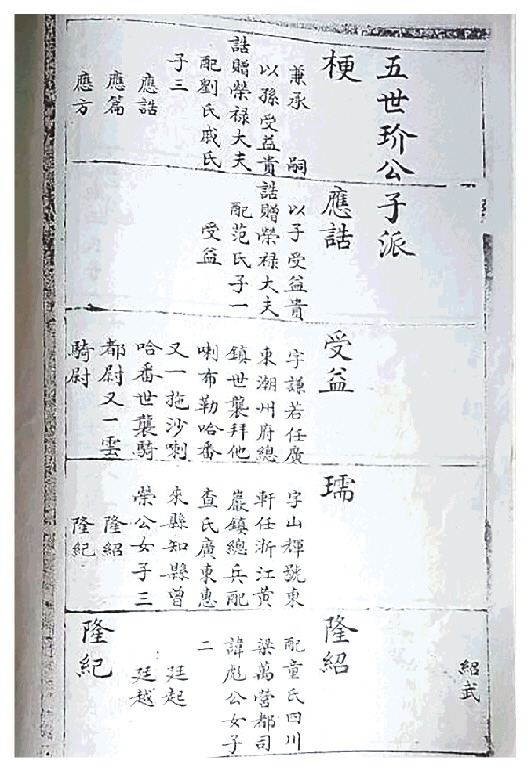 五世玠公子派
梗
兼承 嗣
以孫受益貴
誥贈榮禄大夫
配劉氏戚氏
子三
應誥
應篇
應方
應誥
以子受益貴
誥贈榮禄大夫
配范氏子一
受益
受益
字謙若任廣
東潮州府總
鎮世襲拜他
喇布勒哈番
又一拖沙喇
哈番世襲騎
都尉又一雲
騎尉
瓀
字山輝號東
軒任浙江黄
巖鎮總兵配
查氏廣東惠
來縣知縣曾
榮公女子三
隆紹
隆紀
紹武
隆紹
配童氏四川
梁萬營都司
諱彪公女子
二
廷起
廷越
隆紀